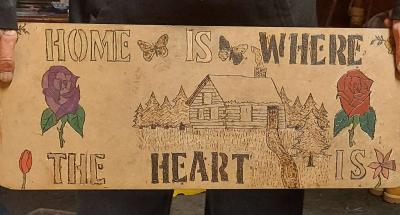 HOME IS WHERE
THE HEART IS